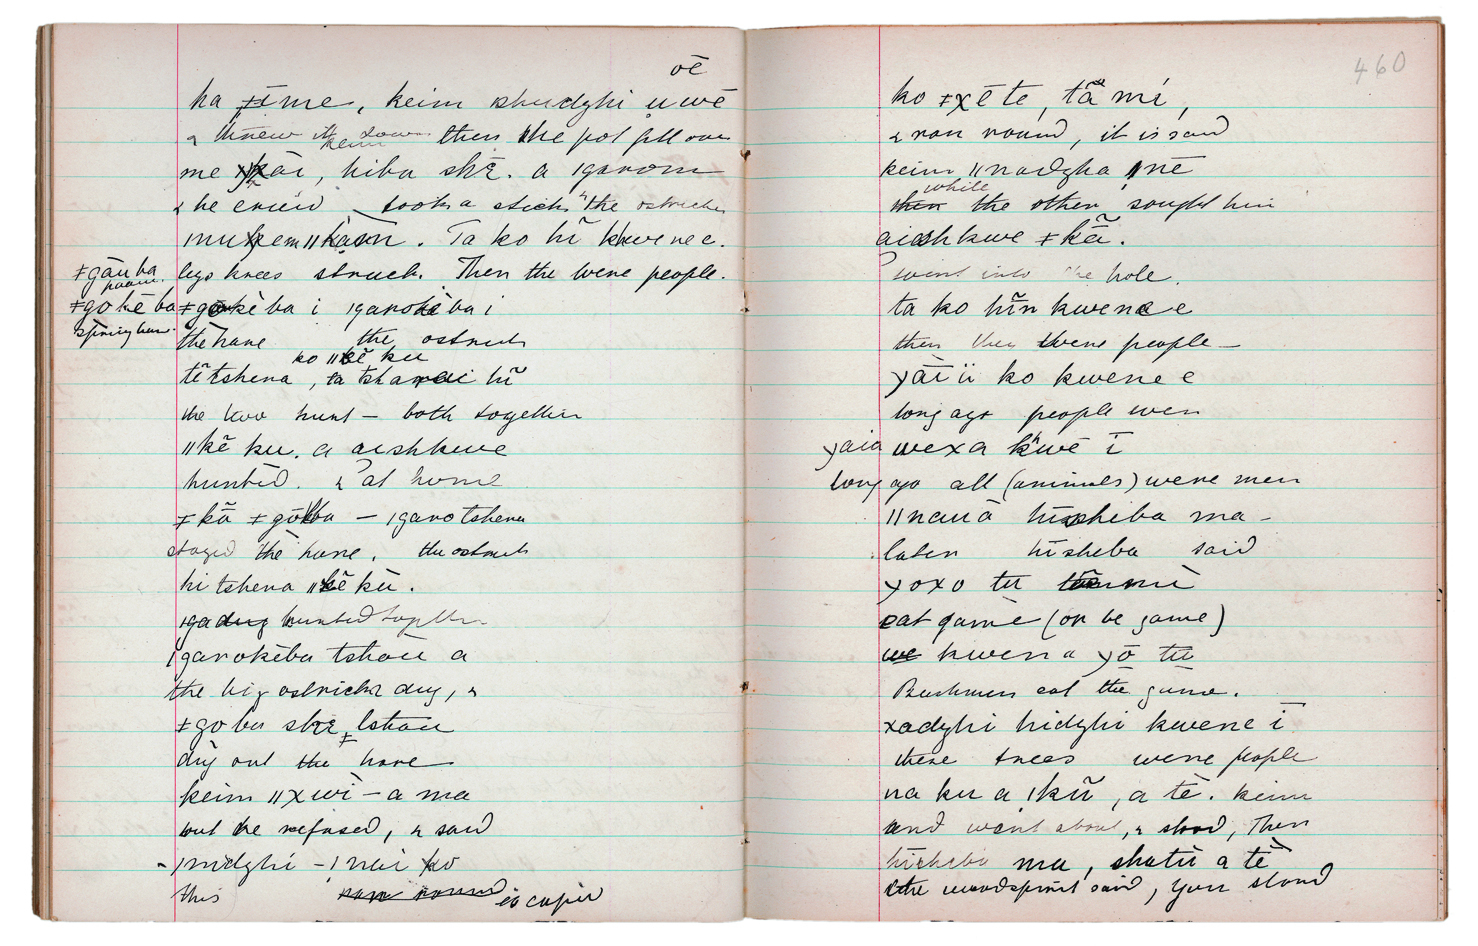 oē
ha ǂīme, keim shudzhi uwē
& threw it down then the pot fell over
keim
me kāi, hiba shē. a ǀgarom
& he cried took a stick & the ostrichs
ǁkaom. Ta ko hĩ kwene e.
legs knees struck. Then the were people.
ǂgāuba
paauw.
ǂgokēba
spring hare
ǂgokēba i ǀgarokēba i
the hare the ostrich
ko ǁkē ku
tētshena, hĩ
the two hunt – both together
ǁkē ku. a aishkwe
hunted. & at home
ǂkā ǂgōba – ǀgarotshena
stayed the hare. the ostrich
hi tshena ǁkē kū.
hunted together
ǀgarokēba tshōū a
the big ostrich dug, &
ǂgoba shē tshou
dug out the hare
keim ǁxwì – a ma
but he refused, & said
ǀnidzhi – ǀnai ko
this ran round is capid
460
ko ǂxē te, tã mí,
& ran round, it is said
keim ǁnadzha nē
then while the other sought him
aishkwe ǂkã.
went into the hole.
ta ko hĩn kwene e
then they were people –
yāi ii ko kwene e
long ago people were
yaia wexa kwē ī
long ago all (animals) were men
ǁnauà hisheba ma –
later hisheba said
yoxo tu
eat game (or be game)
we kwena yō tū
Bushmen eat the game.
xadzhi hidzhi kwene ī
these trees were people
na ku a ǃkũ, a tè. keim
and went about, & stood, Then
hisheba ma, shatū a tè
the woodspirit said, you stand